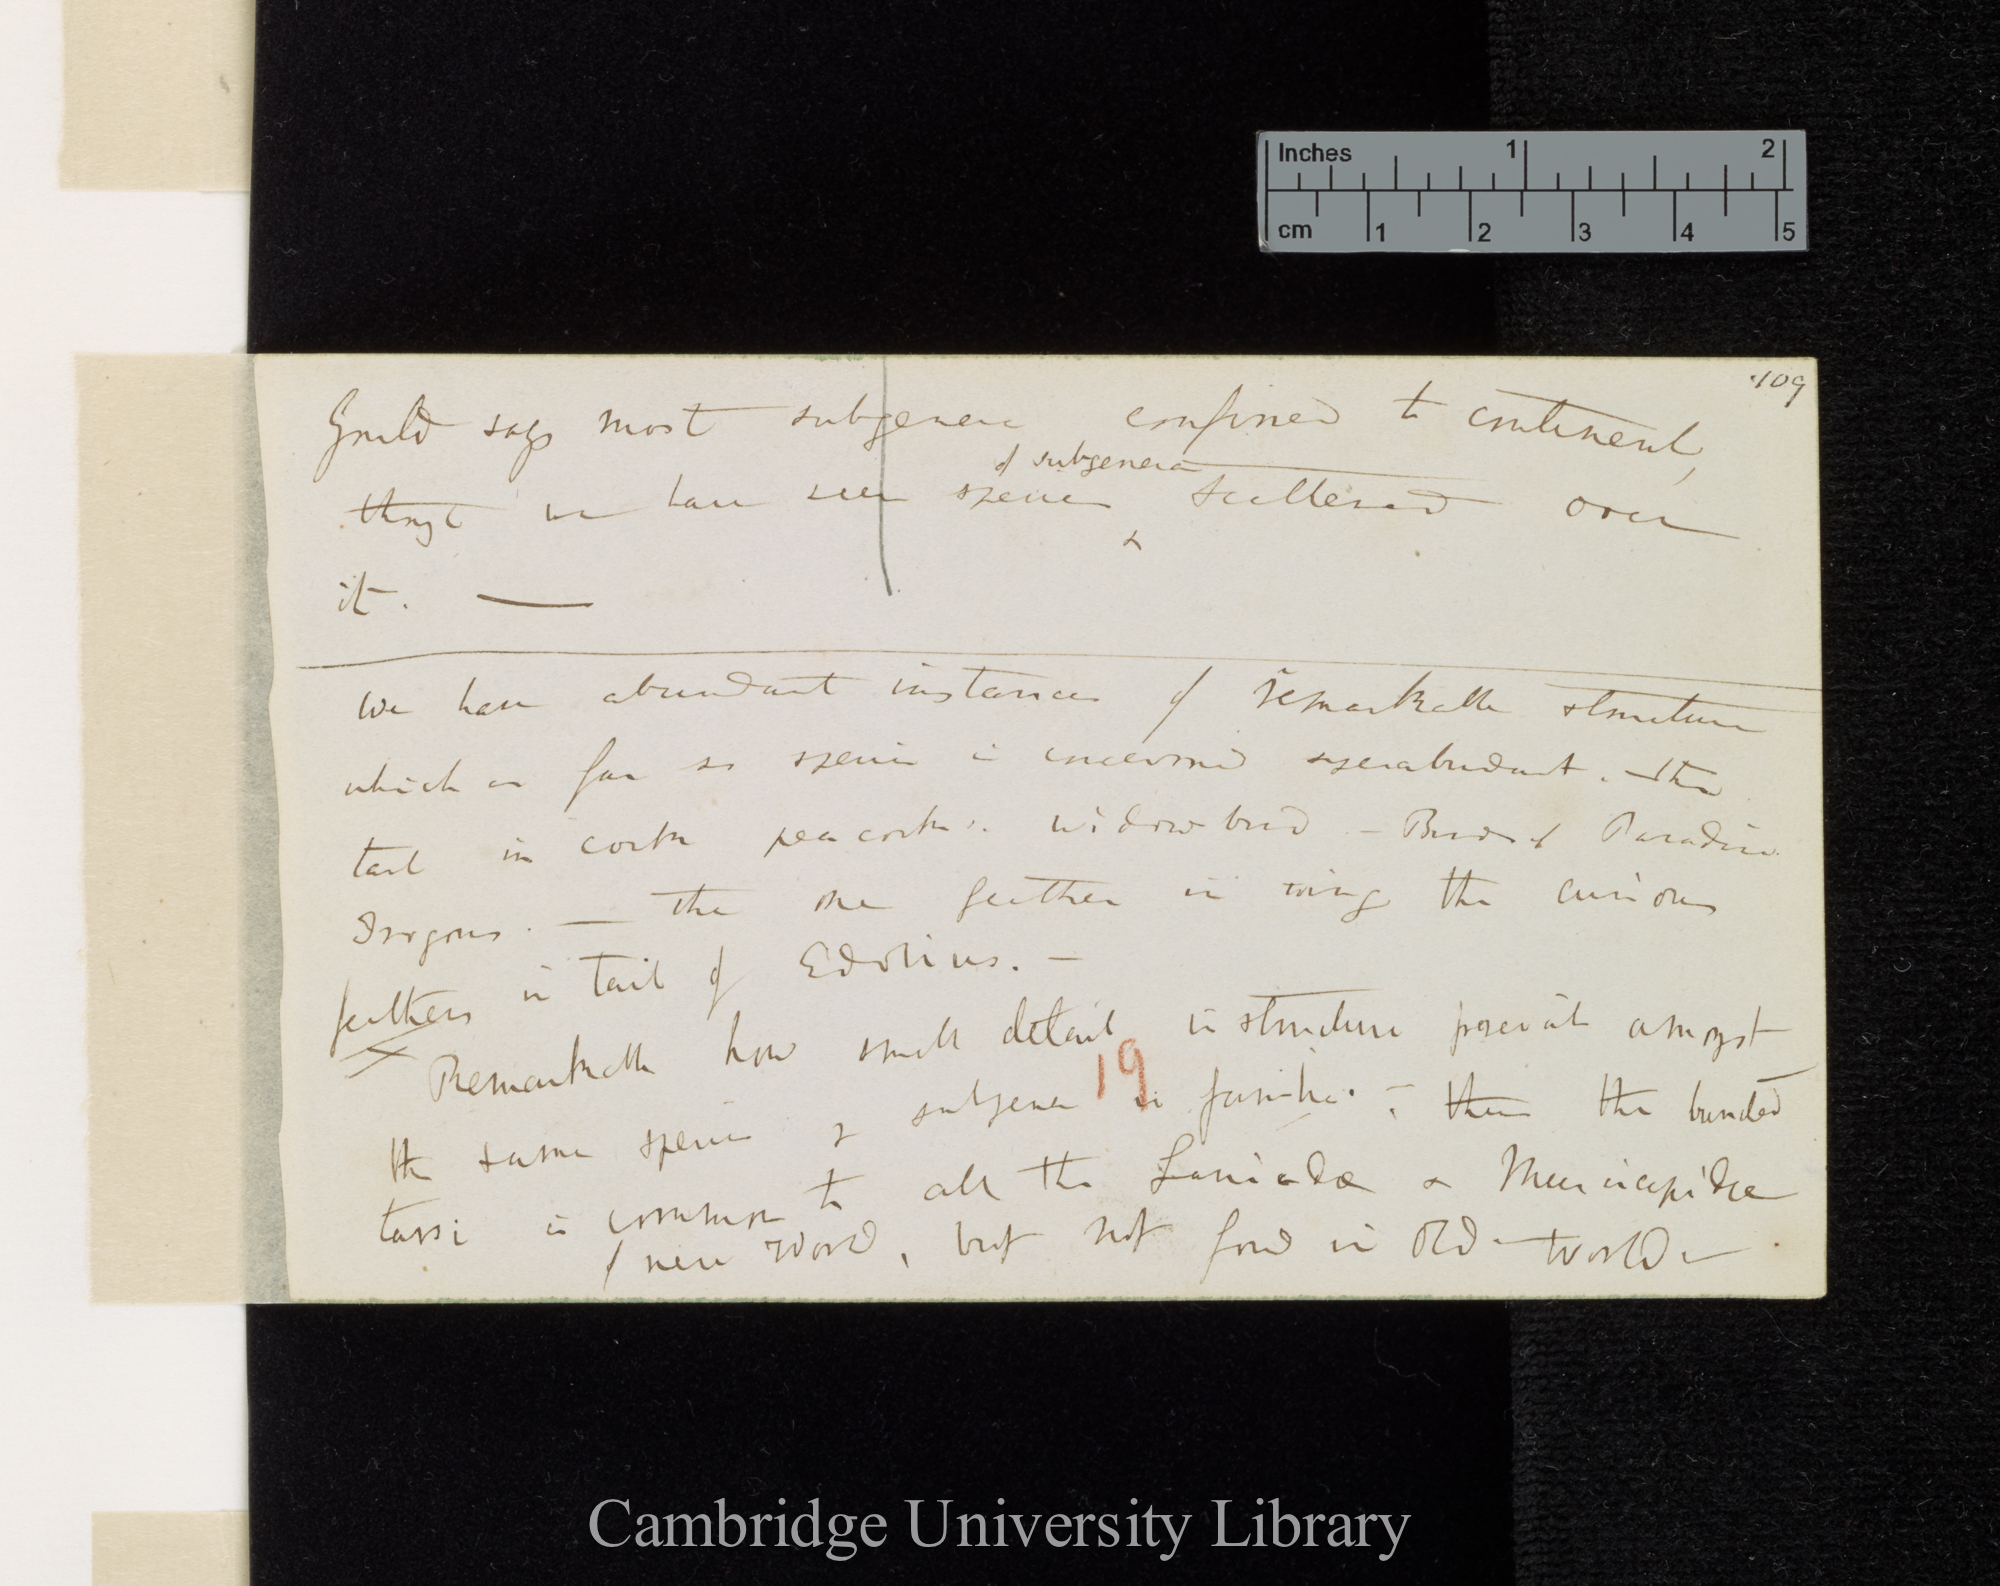 Inches 1 2
cm 1 2 3 4 5
109
Gould says most subgenera confined to continent,
though we have seen species ^ of subgenera scattered over
it. —
We have abundant instances of remarkable structure
which as far as species is concerned superabundant. — the
tail in cocks peacocks. widow bird — Birds of Paradise
Trogons. — The one feather in wing the curious
feathers in tail of Edolius. —
Remarkable how small details in structure prevail amongst
19
the same species & subgenera in families. — thus the banded
tarsi is common to all the Laniadæ & Muscicapidæ
of new World, but not found in Old-World—
Cambridge University Library